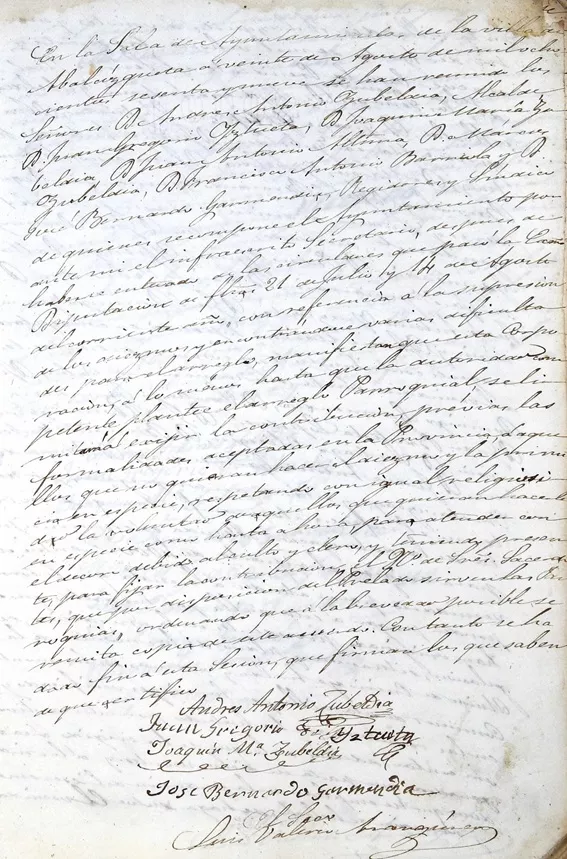 En la Sala de Ayuntamiento, de la villa de
Abalcizqueta á veinte de Agosto de mil ocho
cientos sesenta y nueve se han reunido los
Señores D. Andres Antonio Zubeldia, Alcalde
D. Juan Gregorio Yztueta, D. Joaquin María Zu
beldia, D. Juan Antonio Altuna, D. Márcos
Zubeldia, D. Francisco Antonio Barriola y D.
José Bernardo Garmendia, Regidores y Sindico
de quienes se compone el Ayuntamiento por
ante mi el infraescrito Secretario, despues de
haberse enterado de las circulares que pasó la Excma
Diputacion de fhas 21 de Julio y 14 de Agosto
del corriente año, con referencia á la supresion
de los diezmos y encontrándose varias dificulta
des para el arreglo, manifiestan que esta Corpo
racion, á lo menos hasta que la autoridad com
petente plantee el arreglo Parroquial, se li
mitará á exijir la contribucion, prévias las
formalidades aceptadas en la Provincia, á aque
llos que no quieran hacer el diezmo y la primi
cia en especie, respetando con igual religiosi
dad la voluntad de aquellos que quieran hacerlo
en especie como hasta ahora, para atender con
el decoro debido al culto y clero, y teniendo presen
te, para fijar la contribucion, el Nº de Sres. Sacerdo
tes, que por disposicion del Prelado sirven las Par
roquias, ordenando que á la brevedad posible se
remita copia de este acuerdo. Con tanto se ha
dado fin á esta Sesion, que firman los que saben
de que certifico
Andres Antonio Zubeldia
Juan Gregorio Yztueta
Joaquin Mª Zubeldia
Jose Bernardo Garmendia
Luis Valerio